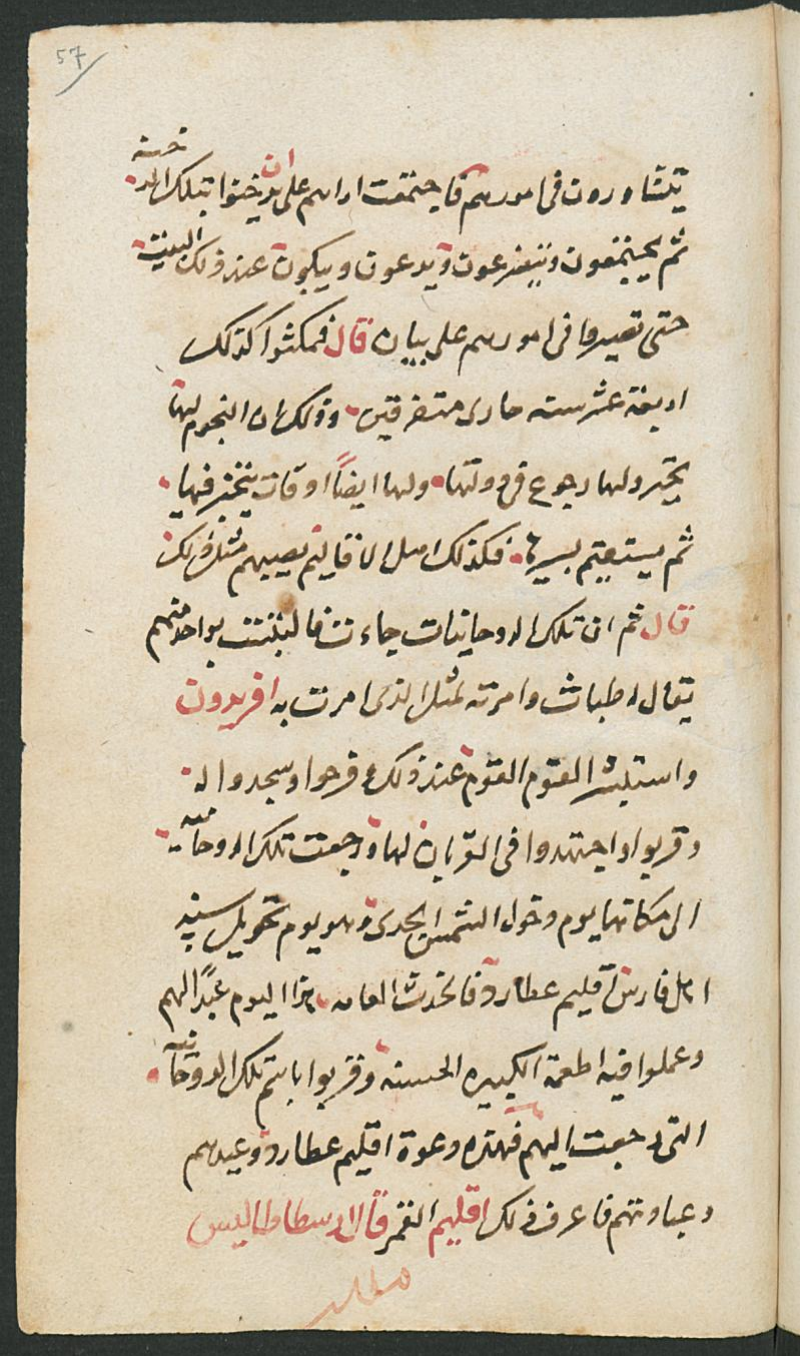 57
يتشاورون فى امورهم فاجتمعت اراهم على ان يدخنوا بتلك الدخنه
ثم يجتمعون ويتضرعون ويدعون ويبكون عند ذلك البيت
حتى تصيروا فى امورهم على بيان قال فمكثوا كذلك
اربعة عشر سنه حارى متفرقين وذلك ان النجوم لها
تحير ولها رجوع فى دولتها ولها ايضاً اوقات يتحير فيها
ثم يستقيم بسيرها فكذلك اهل الاقاليم يصيبهم مثل ذلك
قال ثم ان تلك الروحانيات جاءت فا لبواحد منهم
يقال اطباث وامرته بمثل الذى امرت به افريدون
واستبشر القوم القوم عند ذلك و فرحوا وسجدوا له
وقربوا واجتهدوا فى القربان لها ورجعت تلك الروحانيه
الى مكانها يوم دخول الشمس الجدى وهو يوم تحويل سنه
اهل فارس اقليم عطارد فاتخدث العامه هذا اليوم عيدًا لهم
وعملوا فيه اطعمة الكبيره الحسنه وقربوا باسم تلك الروحانيه
التى رجعت اليهم فهذه دعوة اقليم عطارد وعيدهم
وعبادتهم فاعرف ذلك اقليم القمر قال ارسطاطاليس
مطلب